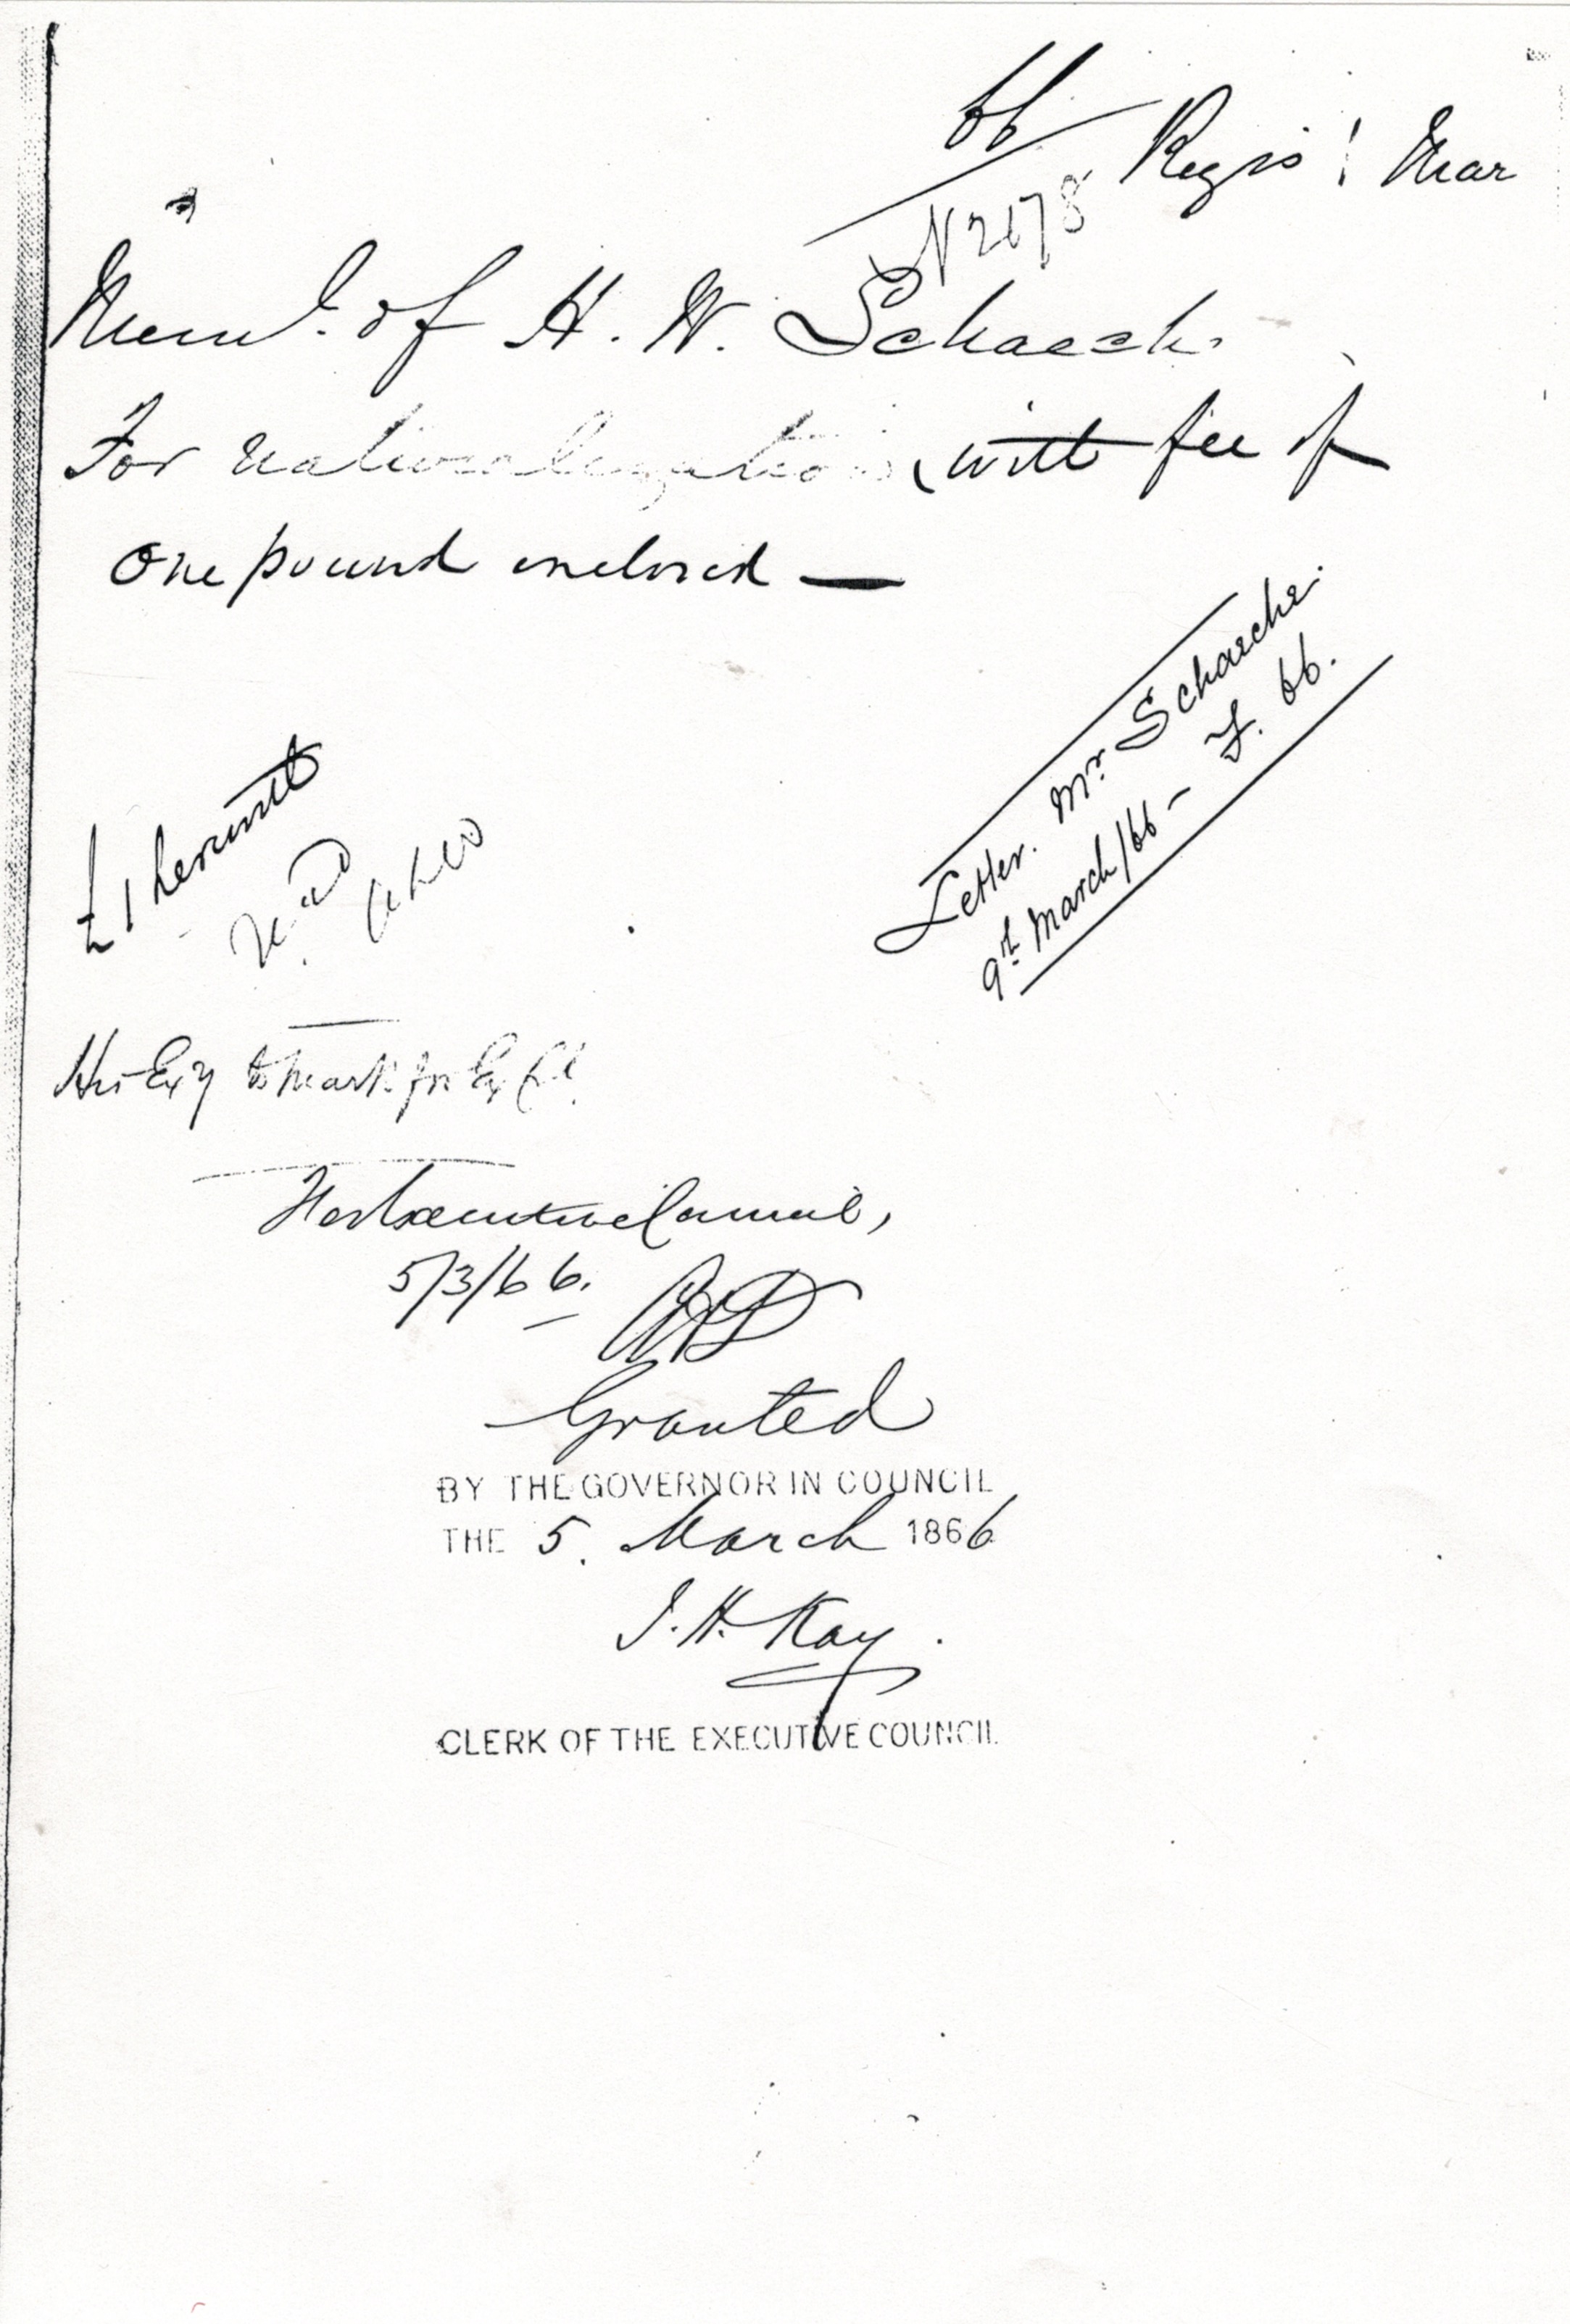 66 Regis! Mar
N2178
Meml. of H. W. Schaech.
For nationalization, with fee of
One pound enclosed —
Letter. Mr. Schaeche.
9th March/66 — F. 66.
£1 herewith
His Exy to mark for Ex Cl.
For Executive Council,
5/3/66.
Granted
BY THE GOVERNOR IN COUNCIL
THE 5. March 1866
J. H. Kay.
CLERK OF THE EXECUTIVE COUNCIL